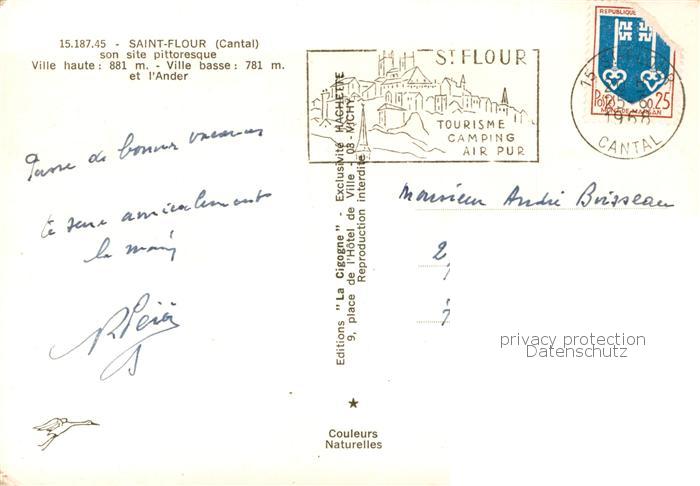 15.187.45 - SAINT-FLOUR (Cantal)
son site pittoresque
Ville haute : 881 m. - Ville basse : 781 m.
et l'Ander
Passe de bonnes vacances
te serre amicalement
la main
ST FLOUR
TOURISME
CAMPING
AIR PUR
REPUBLIQUE
0,25
MONT-DE-MARSAN
15
1968
CANTAL
Editions "La Cigogne" - Exclusivité HACHETTE
9, place de l'Hôtel de Ville - 03-VICHY
Reproduction interdite
Monsieur André Boisseau
2
privacy protection
Datenschutz
Couleurs
Naturelles